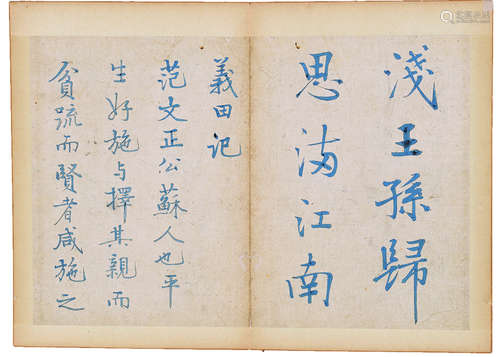 淺王孫歸
思滿江南
義田記
范文正公蘇人也平
生好施与擇其親而
貧疏而賢者咸施之